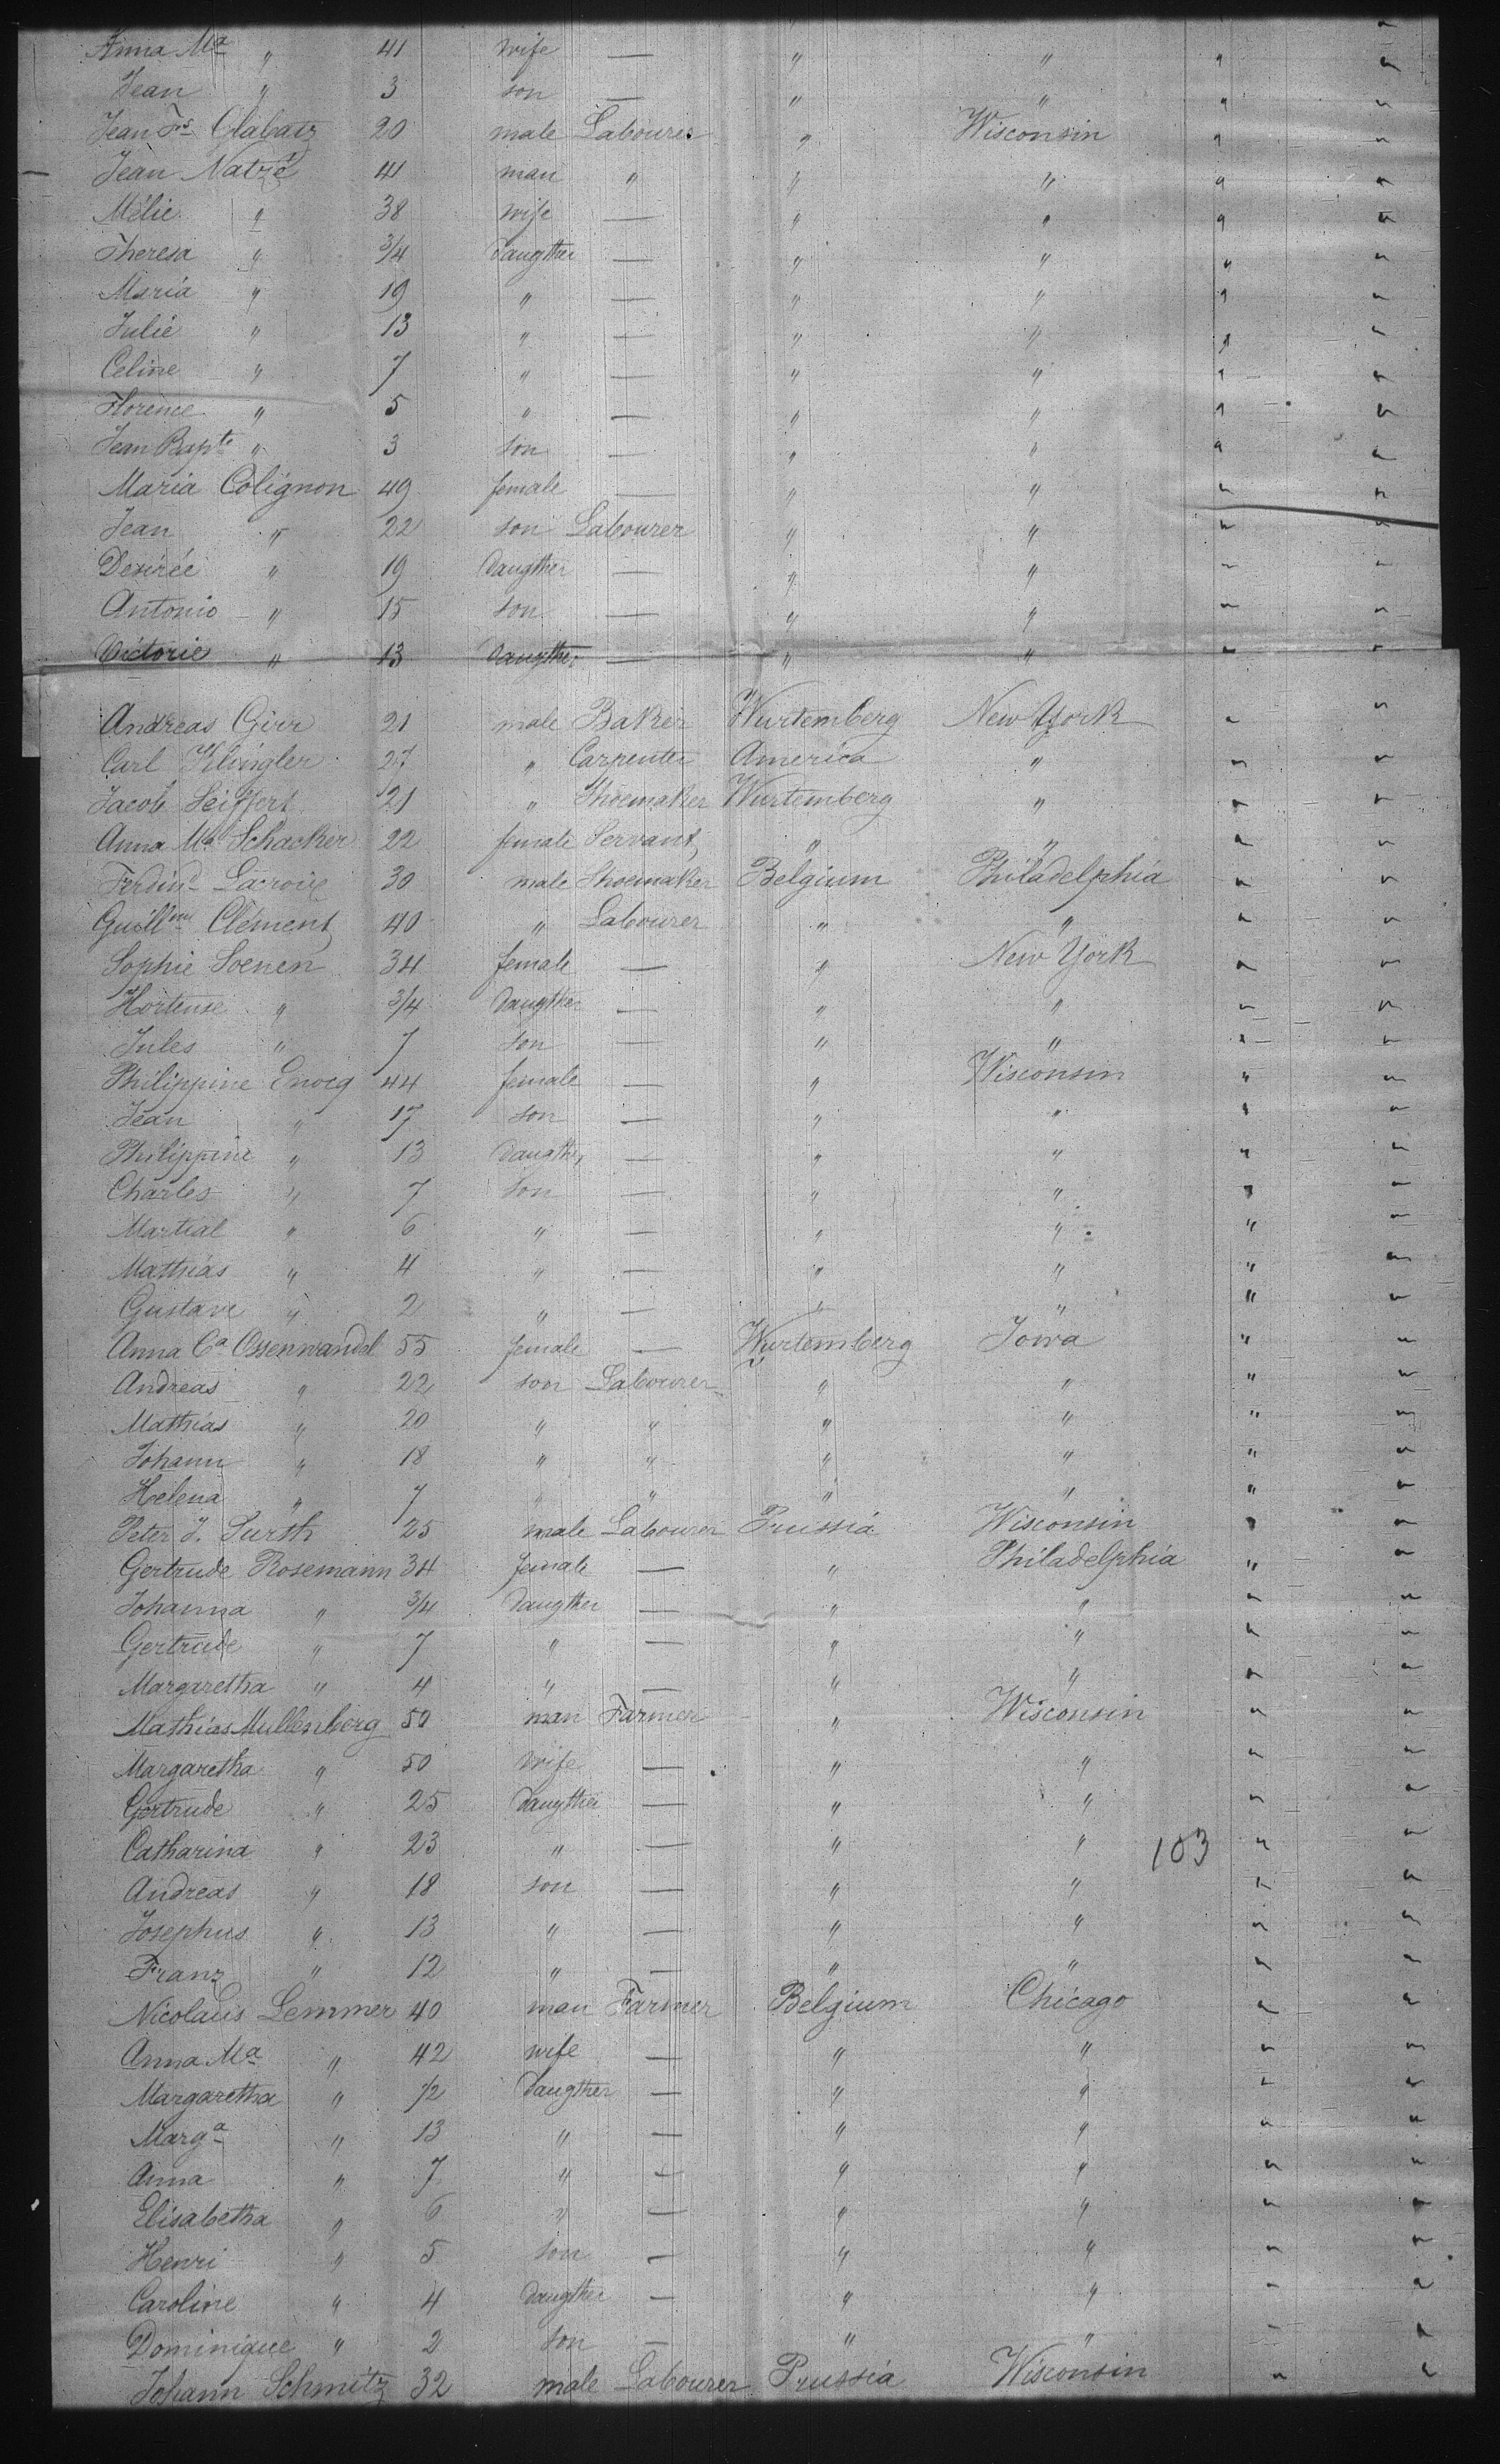 Anna Ma " 41 wife — " " " "
Jean " 3 son — " " " "
Jean Frs Glabatz 20 male Labourer " Wisconsin " "
Jean Natzé 41 man " " " " "
Mélie " 38 wife — " " " "
Theresa " 3/4 Daugther — " " " "
Maria " 19 " — " " " "
Julie " 13 " — " " " "
Celine " 7 " — " " " "
Florence " 5 " — " " " "
Jean Bapte " 3 son — " " " "
Maria Colignon 49 female — " " " "
Jean " 22 son Labourer " " " "
Desirée " 19 Daugther — " " " "
Antonio " 15 son — " " " "
Victorie " 13 Daugther — " " " "
Andreas Girr 21 male Baker Wurtemberg New York " "
Carl Klingler 27 " Carpenter America " " "
Jacob Seiffert 21 " Shoemaker Wurtemberg " " "
Anna Ma Schacker 22 female Servant " " " "
Ferdind Lacroix 30 male Shoemaker Belgium Philadelphia " "
Guillme Clément 40 " Labourer " " " "
Sophie Soenen 34 female — " New York " "
Hortense " 3/4 Daugther — " " " "
Jules " 7 son — " " " "
Philippine Enocq 44 female — " Wisconsin " "
Jean " 17 son — " " " "
Philippine " 13 Daugther — " " " "
Charles " 7 son — " " " "
Martial " 6 " — " " " "
Mathias " 4 " — " " " "
Gustave " 2 " — " " " "
Anna Ca Ossenwandel 55 female — Wurtemberg Iowa " "
Andreas " 22 son Labourer " " " "
Mathias " 20 " " " " " "
Johann " 18 " " " " " "
Helena " 7 " " " " " "
Peter J. Sursth 25 male Labourer Prussia Wisconsin " "
Gertrude Rosemann 34 female — " Philadelphia " "
Johanna " 3/4 Daugther — " " " "
Gertrude " 7 " — " " " "
Margaretha " 4 " — " " " "
Mathias Mullenberg 50 man Farmer " Wisconsin " "
Margaretha " 50 wife — " " " "
Gertrude " 25 Daugther — " " " "
Catharina " 23 " — " " 103 " "
Andreas " 18 son — " " " "
Josephus " 13 " — " " " "
Franz " 12 " — " " " "
Nicolaus Lemmer 40 man Farmer Belgium Chicago " "
Anna Ma " 42 wife — " " " "
Margaretha " 1/2 Daugther — " " " "
Marga " 13 " — " " " "
Anna " 7 " — " " " "
Elisabetha " 6 " — " " " "
Henri " 5 son — " " " "
Caroline " 4 Daugther — " " " "
Dominique " 2 son — " " " "
Johann Schmitz 32 male Labourer Prussia Wisconsin " "